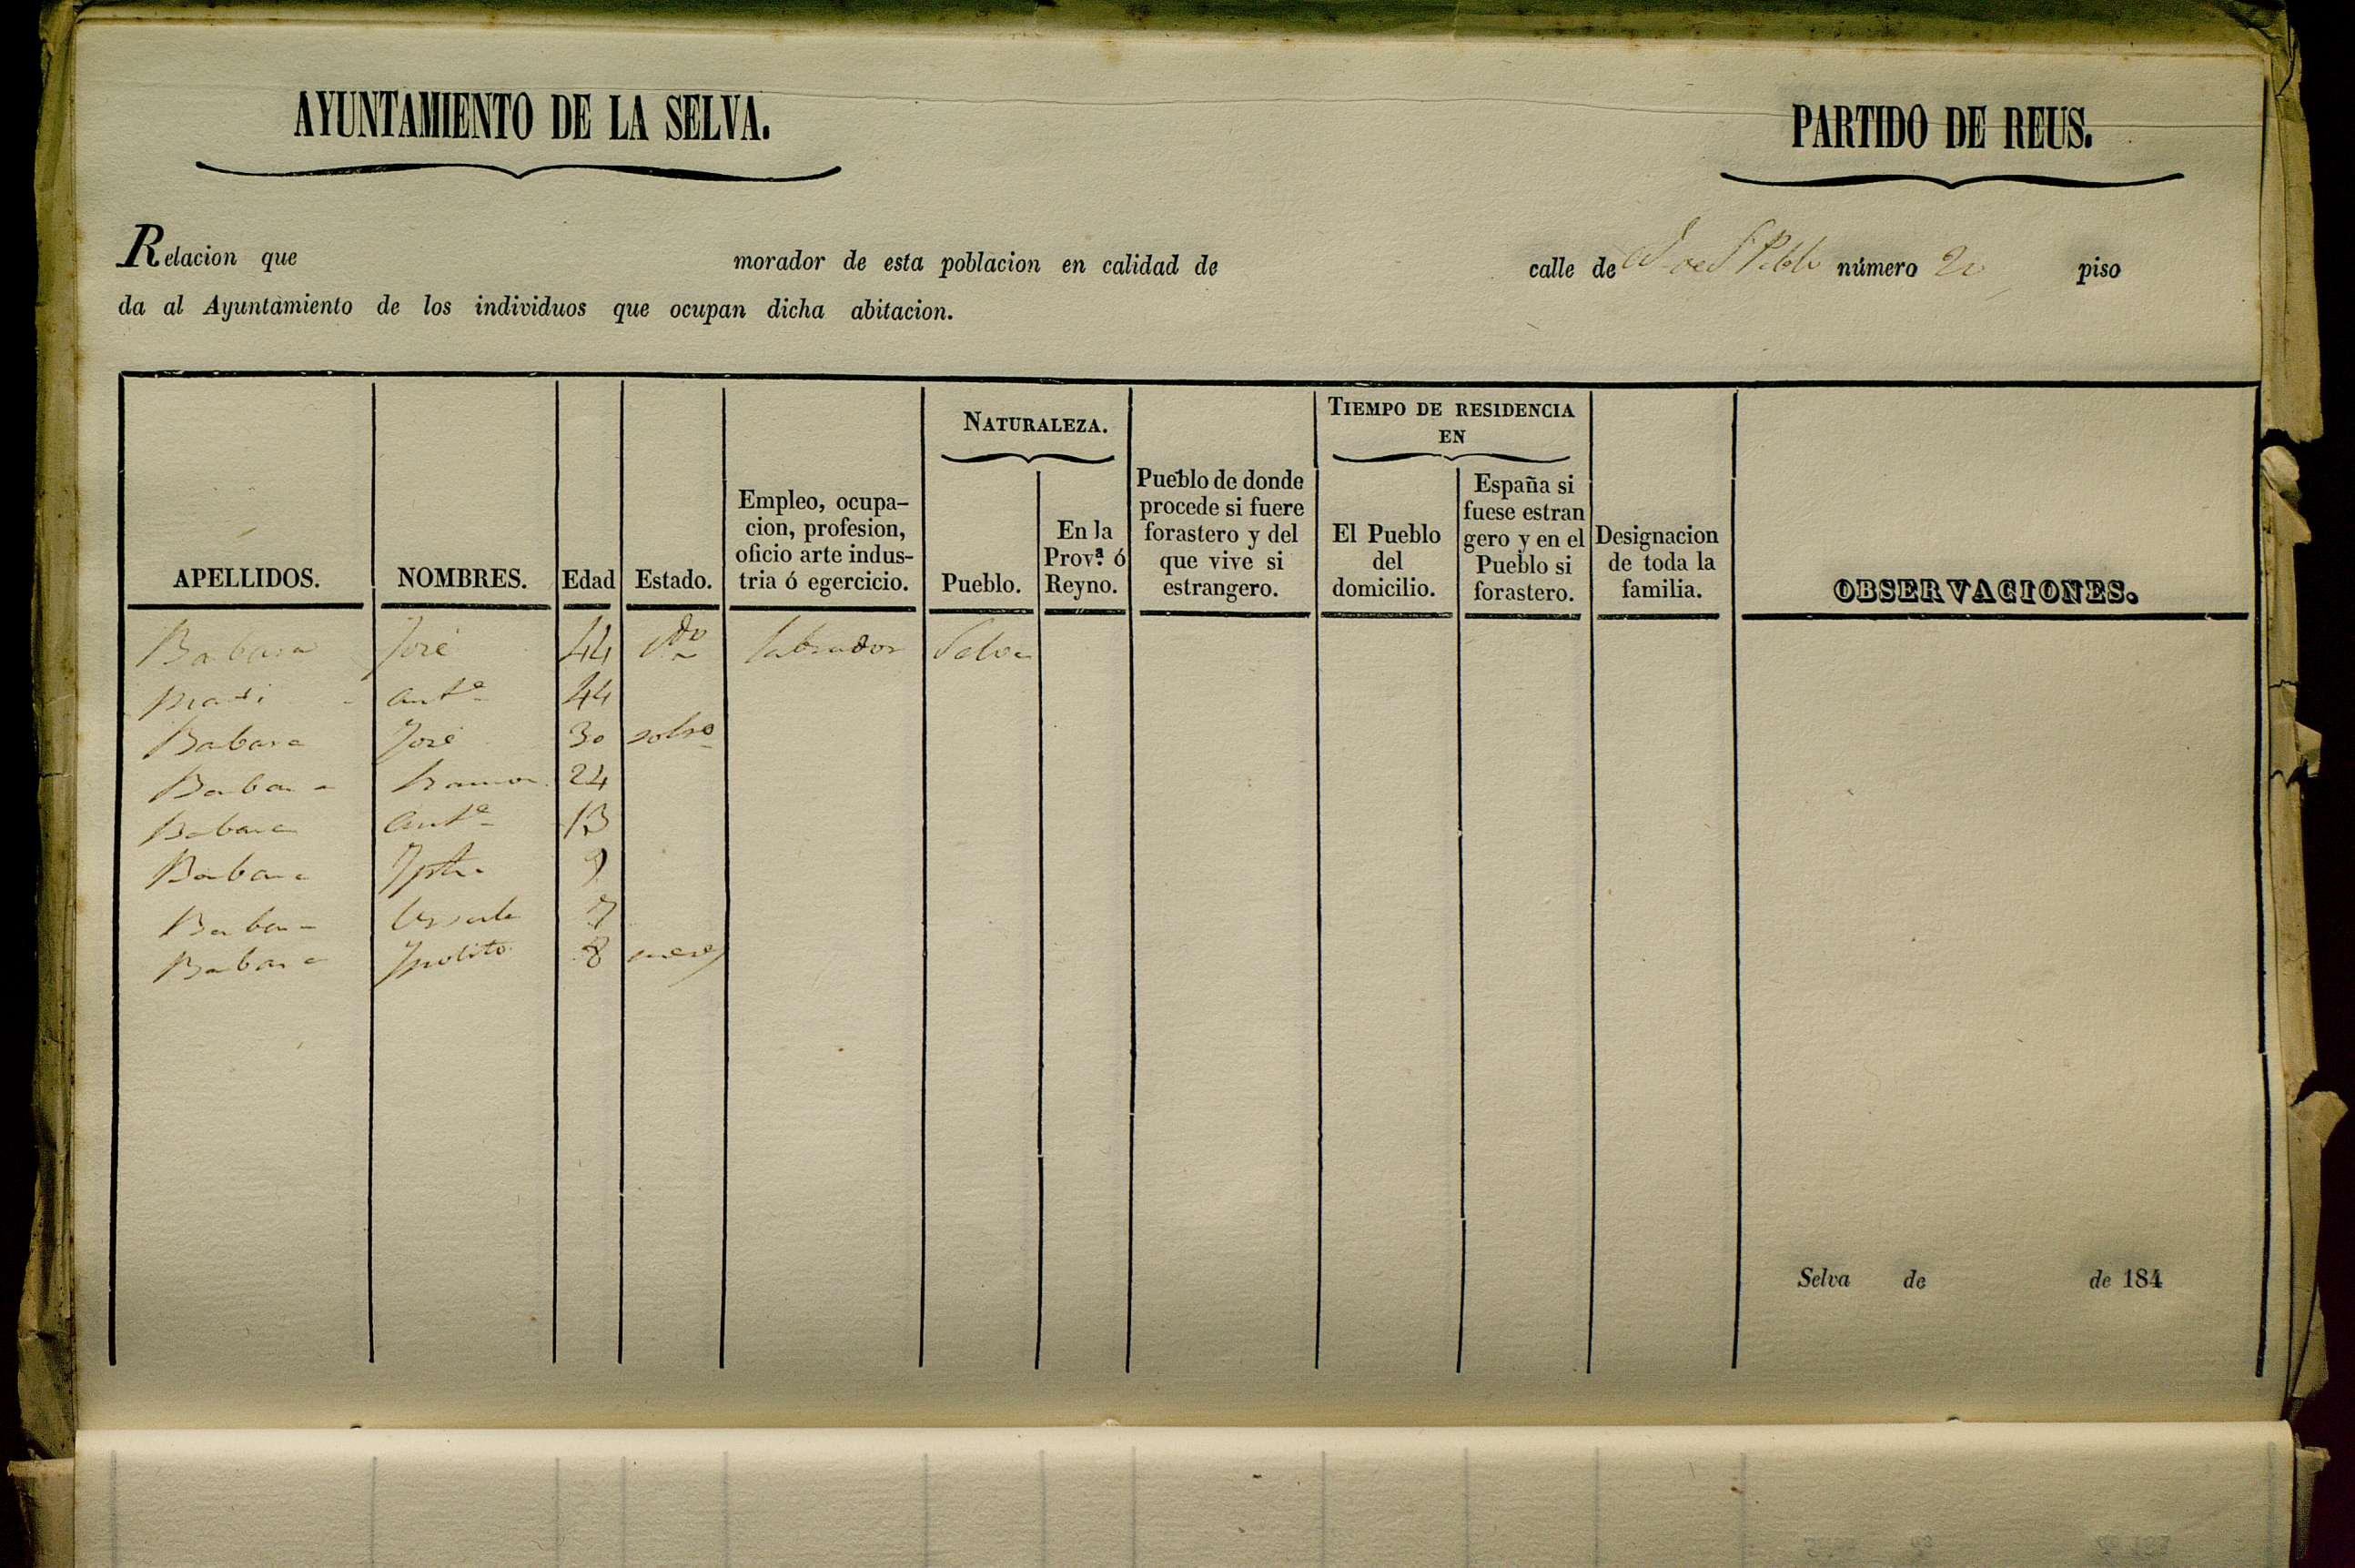 AYUNTAMIENTO DE LA SELVA.
PARTIDO DE REUS.
Relacion que morador de esta poblacion en calidad de calle de S Pablo número 20 piso
da al Ayuntamiento de los individuos que ocupan dicha abitacion.
APELLIDOS.
NOMBRES.
Edad
Estado.
Empleo, ocupa-
cion, profesion,
oficio arte indus-
tria ó egercicio.
NATURALEZA.
Pueblo.
En la
Prov.ª ó
Reyno.
Pueblo de donde
procede si fuere
forastero y del
que vive si
estrangero.
TIEMPO DE RESIDENCIA
EN
El Pueblo
del
domicilio.
España si
fuese estran
gero y en el
Pueblo si
forastero.
Designacion
de toda la
familia.
OBSERVACIONES.
Barbara José 44 labrador Selva
Ant.ª 44
Barbara José 30 solt.º
Barbara Ramon 24
Barbara Ant.ª 13
Barbara 9
Barbara Ursula 7
Barbara Ypolito 8 meses
Selva de de 184